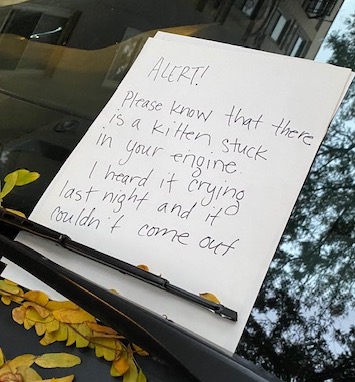 ALERT!
Please know that there
is a kitten stuck
in your engine.
I heard it crying
last night and it
couldn't come out